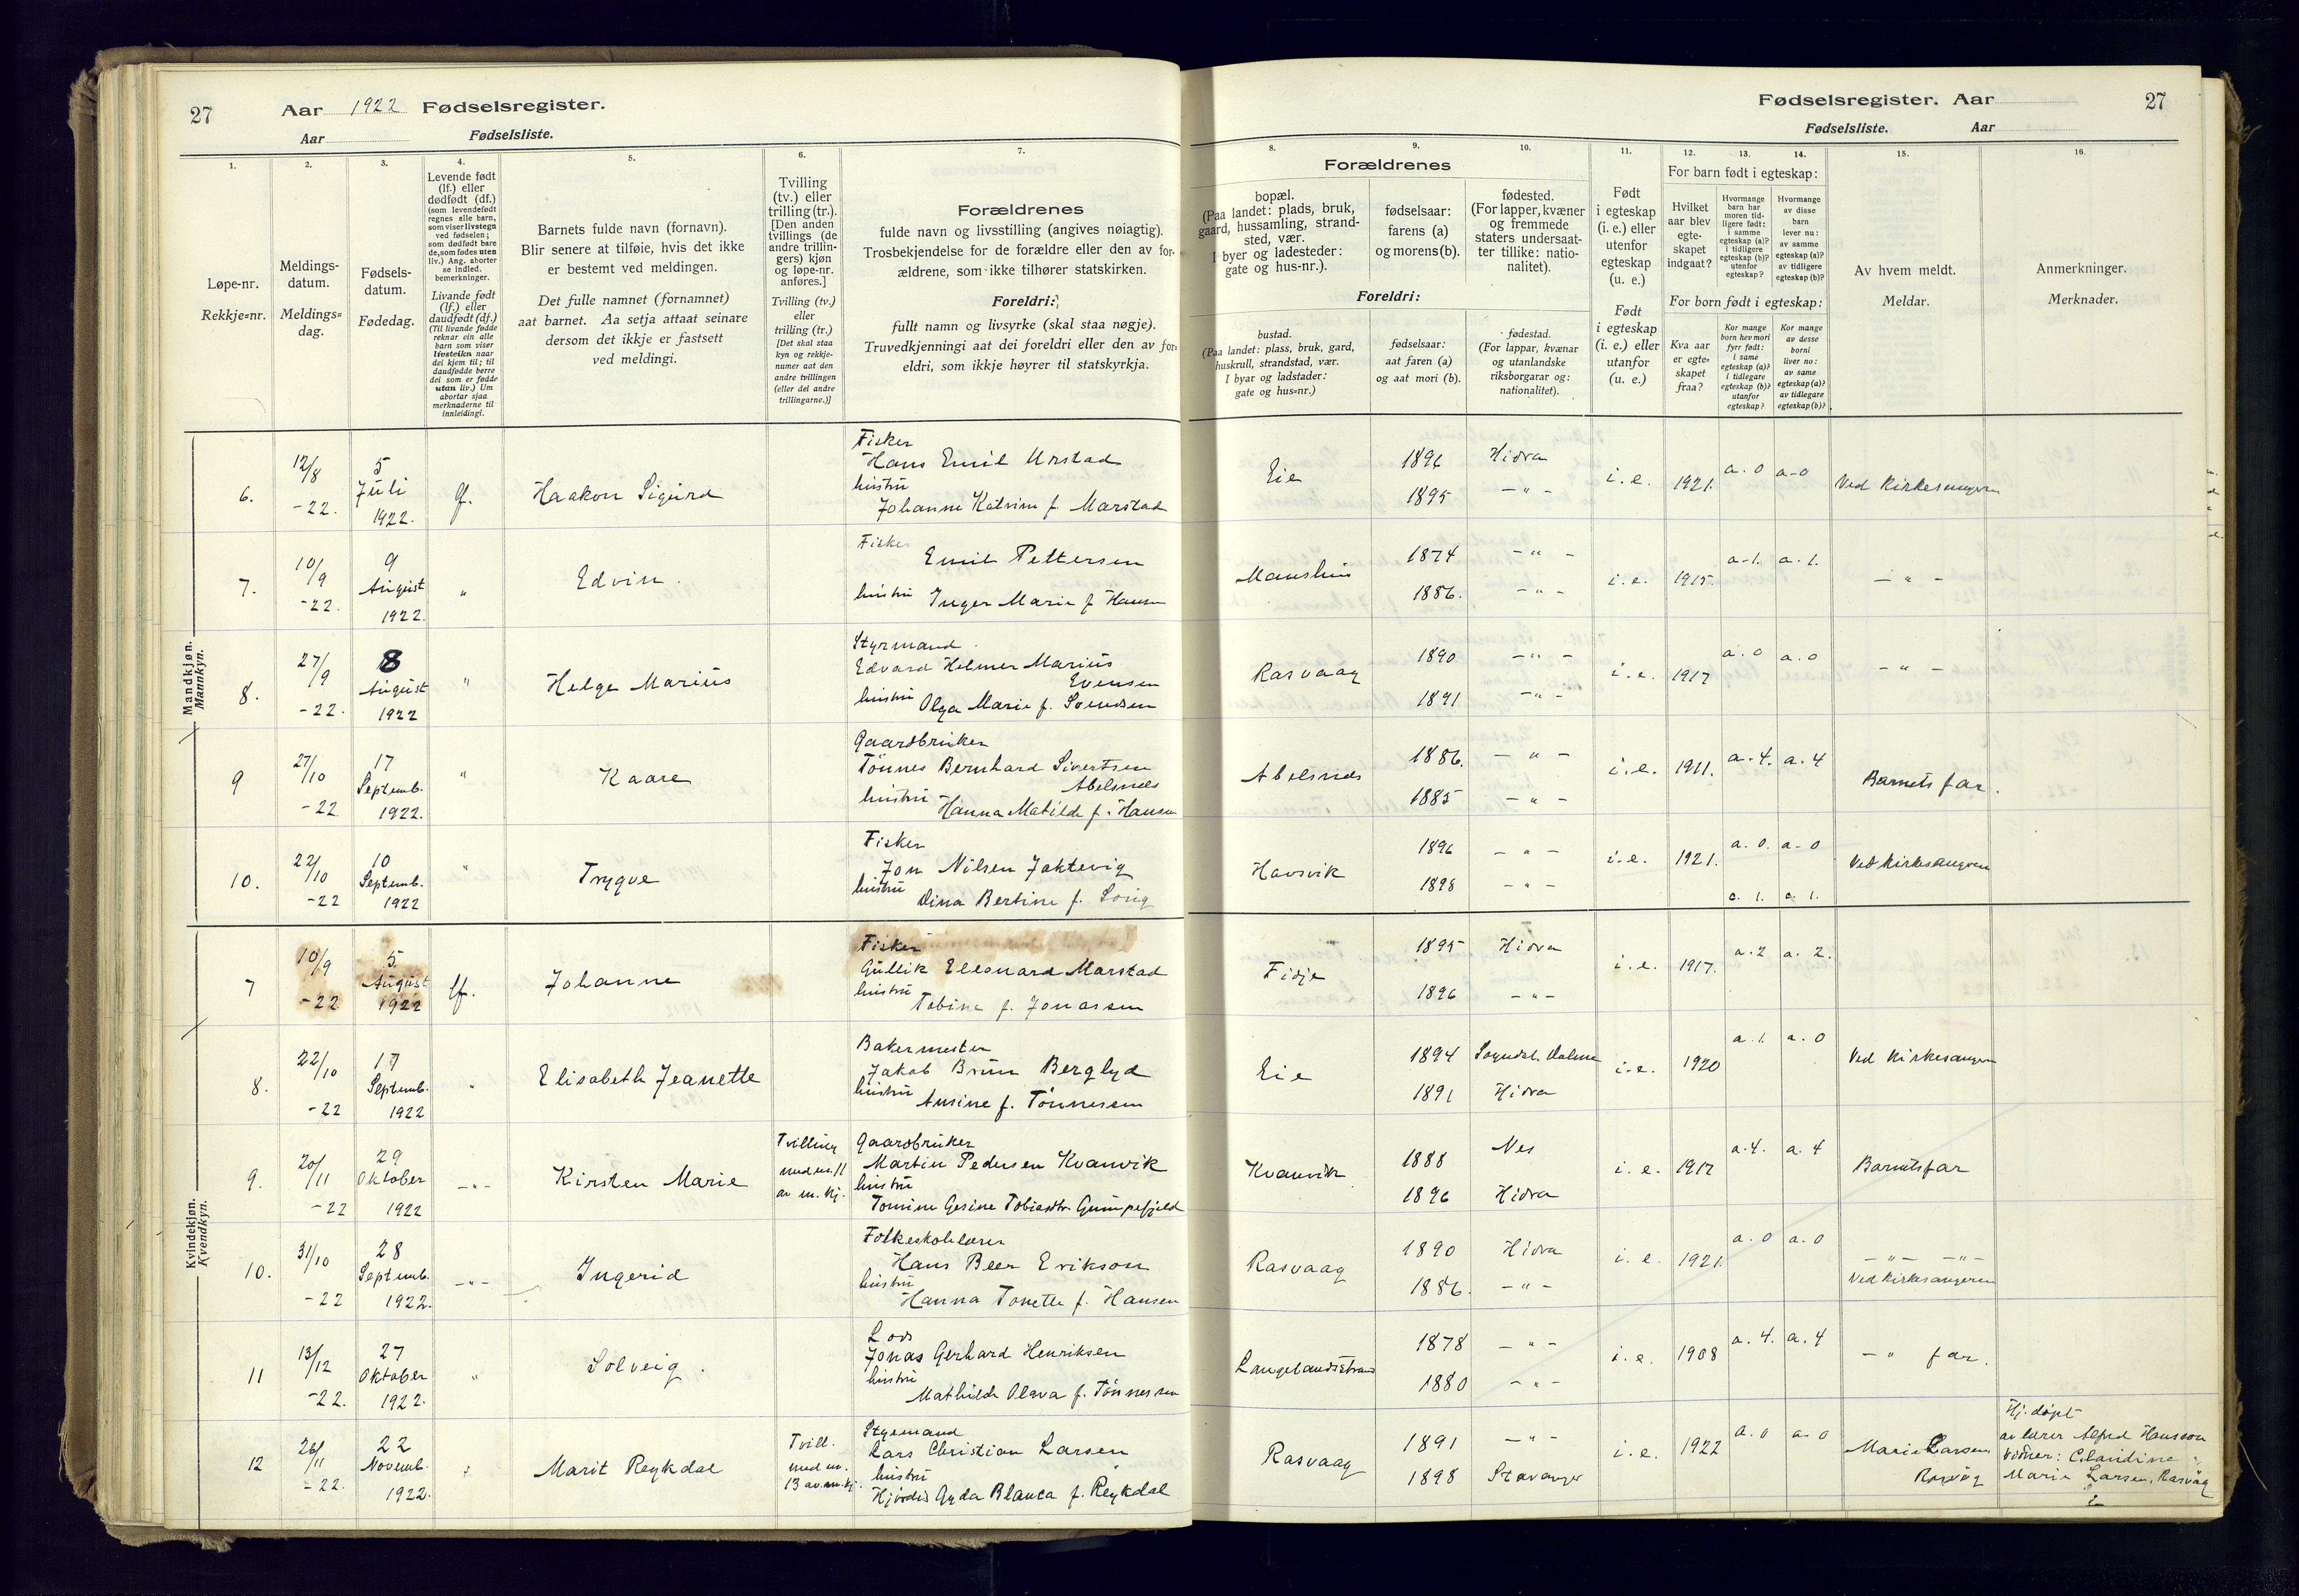 27 Aar 1922 Fødselsregister.
Aar Fødselsliste.
1.
2.
3.
4.
5.
6.
7.
Løpe-nr.
Rekkje=nr.
Meldings-
datum.
Meldings=
dag.
Fødsels-
datum.
Fødedag.
Levende født
(lf.) eller
dødfødt (df.)
(som levendefødt
regnes alle barn,
som viser livstegn
ved fødselen;
som dødfødt bare
de, som fødes uten
liv.) Ang. aborter
se indled.
bemerkninger.
Livande født
(lf.) eller
daudfødt (df.)
(Til livande fødde
reknar ein alle
barn som viser
livsteikn naar
dei kjem til; til
daudfødde berre
dei som er fødde
utan liv.) Um
abortar sjaa
merknaderne til
innleidingi.
Barnets fulde navn (fornavn).
Blir senere at tilføie, hvis det ikke
er bestemt ved meldingen.
Det fulle namnet (fornamnet)
aat barnet. Aa setja attaat seinare
dersom det ikkje er fastsett
ved meldingi.
Tvilling
(tv.) eller
trilling (tr.).
[Den anden
tvillings (de
andre trillin-
gers) kjøn
og løpe-nr.
anføres.]
Tvilling (tv.)
eller
trilling (tr.)
[Det skal staa
kyn og rekkje-
numer aat den
andre tvillingen
(eller dei andre
trillingarne.)]
Forældrenes
fulde navn og livsstilling (angives nøiagtig).
Trosbekjendelse for de forældre eller den av for-
ældrene, som ikke tilhører statskirken.
Foreldri:
fullt namn og livsyrke (skal staa nøgje).
Truvedkjenningi aat dei foreldri eller den av for=
eldri, som ikkje høyrer til statskyrkja.
Mandkjøn.
Mannkyn.
6.
12/8
-22.
5
Juli
1922.
lf.
Haakon Sigurd
Fisker
Hans Emil Urstad
hustru
Johanne Katrine f. Marstad
7.
10/9
-22.
9
August
1922.
"
Edvin.
Fisker
Emil Pettersen
hustru Inger Marie f. Hansen
8.
27/9
-22.
8
August
1922
"
Helge Marius
Styrmand
Edvard Helmer Marius
Evensen
hustru Olga Marie f. Svendsen
9
27/10
-22
17
Septemb.
1922.
"
Kaare
Gaardbruker
Tönnes Bernhard Sivertsen
Abelsnes
hustru Hanna Matilde f. Hansen
10.
22/10
-22
10
Septemb.
1922
"
Trygve
Fisker
Jon Nilsen Jaktevig
hustru
Dina Bertine f. Loüig
Kvindekjøn.
Kvendkyn.
7
10/9
-22
5.
August
1922
lf.
Johanne
Fisker
Gullik Elleonard Marstad
hustru
Tobine f. Jonassen
8.
22/10
-22
17
Septemb.
1922
"
Elisabeth Jeanette
Bakermester
Jakob Bruun Berglyd
hustru
Ansine f. Tönnessen
9.
20/11
-22
29
Oktober
1922
-"-
Kirsten Marie
Tvilling
med nr. 11
av m. kj.
Gaardbruker
Martin Pedersen Kvanvik
hustru
Tomine Gesine Tobiasdtr. Gumpefjeld
10.
31/10
-22
28
Septemb.
1922.
-"-
Ingerid
Folkeskolelærer
Hans Beer Erikson
hustru
Hanna Tonette f. Hansen
11
13/12
-22.
27
Oktober
1922.
"
Solveig.
Lods
Jonas Gerhard Henriksen
hustru
Mathilde Olava f. Tönnessen
12
26/11
-22.
22
Novemb.
1922.
Marit Reykdal
Tvill.
med nr.
13 av m. kj.
Styrmand
Lars Christian Larsen
hustru
Hjördis Gyda Blanca f. Reykdal
Fødselsregister. Aar 27
Fødselsliste. Aar
8.
9.
10.
11.
12.
13.
14.
15.
16.
Forældrenes
bopæl.
(Paa landet: plads, bruk,
gaard, hussamling, strand-
sted, vær.
I byer og ladesteder:
gate og hus-nr.).
fødselsaar:
farens (a)
og morens (b).
fødested.
(For lapper, kvæner
og fremmede
staters undersaat-
ter tillike: natio-
nalitet).
Foreldri:
bustad.
(Paa landet: plass, bruk, gard,
huskrull, strandstad, vær.
I byar og ladstader:
gate og hus=nr.)
fødselsaar:
aat faren (a)
og aat mori (b).
fødestad.
(For lappar, kvænar
og utanlandske
riksborgarar og:
nationalitet).
Født
i egteskap
(i. e.) eller
utenfor
egteskap
(u. e.)
Født
i egteskap
(i. e.) eller
utanfor
(u. e.)
For barn født i egteskap:
Hvilket
aar blev
egte-
skapet
indgaat?
Hvormange
børn har
moren tid-
ligere født:
i samme
egteskap (a)?
i tidligere
egteskap (b)?
utenfor
egteskap?
Hvormange
av disse
barn
lever nu:
av samme
egteskap (a)?
av tidligere
egteskap (b)?
For born født i egteskap:
Kva aar
er egte=
skapet
fraa?
Kor mange
born hev mori
fyrr født:
i same
egteskap (a)?
i tidlegare
egteskap (b)?
utanfor
egteskap?
Kor mange
av desse
borni
liver no:
av same
egteskap (a)?
av tidlegare
egteskap (b)?
Av hvem meldt.
Meldar.
Anmerkninger.
Merknader.
Eie
1896
1895
Hidra
-"-
i. e.
1921.
a. 0
a-0
Ved Kirkesangern
Maushus
1874
1886.
-"-
-"-
i. e.
1915.
a-1.
a. 1.
-"-
Rasvaag
1890
1891
-"-
-"-
i. e.
1917
a. 0
a. 0
-"-
Abelsnes
1886.
1885
-"-
-"-
i. e.
1911.
a. 4.
a. 4
Barnets far.
Havsvik
1896
1898
-"-
-"-
i. e.
1921.
a. 0.
a-0
c. 1.
c. 1.
Ved Kirkesangeren
Fidje
1895
1896
Hidra
-"-
i. e.
1917.
a. 2
a. 2.
Eie
1894
1891
Sogndal, Dalene
Hidra
i. e.
1920
a. 1.
a. 0
Ved Kirkesangern
Kvanvik
1888
1896
Nes
Hidra
i. e.
1917
a. 4.
a. 4
Barnets far
Rasvaag
1890
1886.
Hidra
-"-
i. e.
1921.
a. 0
a. 0
-"- -"-
Ved Kirkesangeren
Langelandsstrand
1878
1880
-"-
-"-
i. e.
1908
a. 4.
a. 4
-" far.
Rasvaag
1891
1898
-"-
Stavanger
i. e.
1922
a. 0
a-0
Marie Larsen
Rasvåg
Hj. döpt
av lærer Alfred Hansson
vidner: Claudine
Marie Larsen, Rasvåg